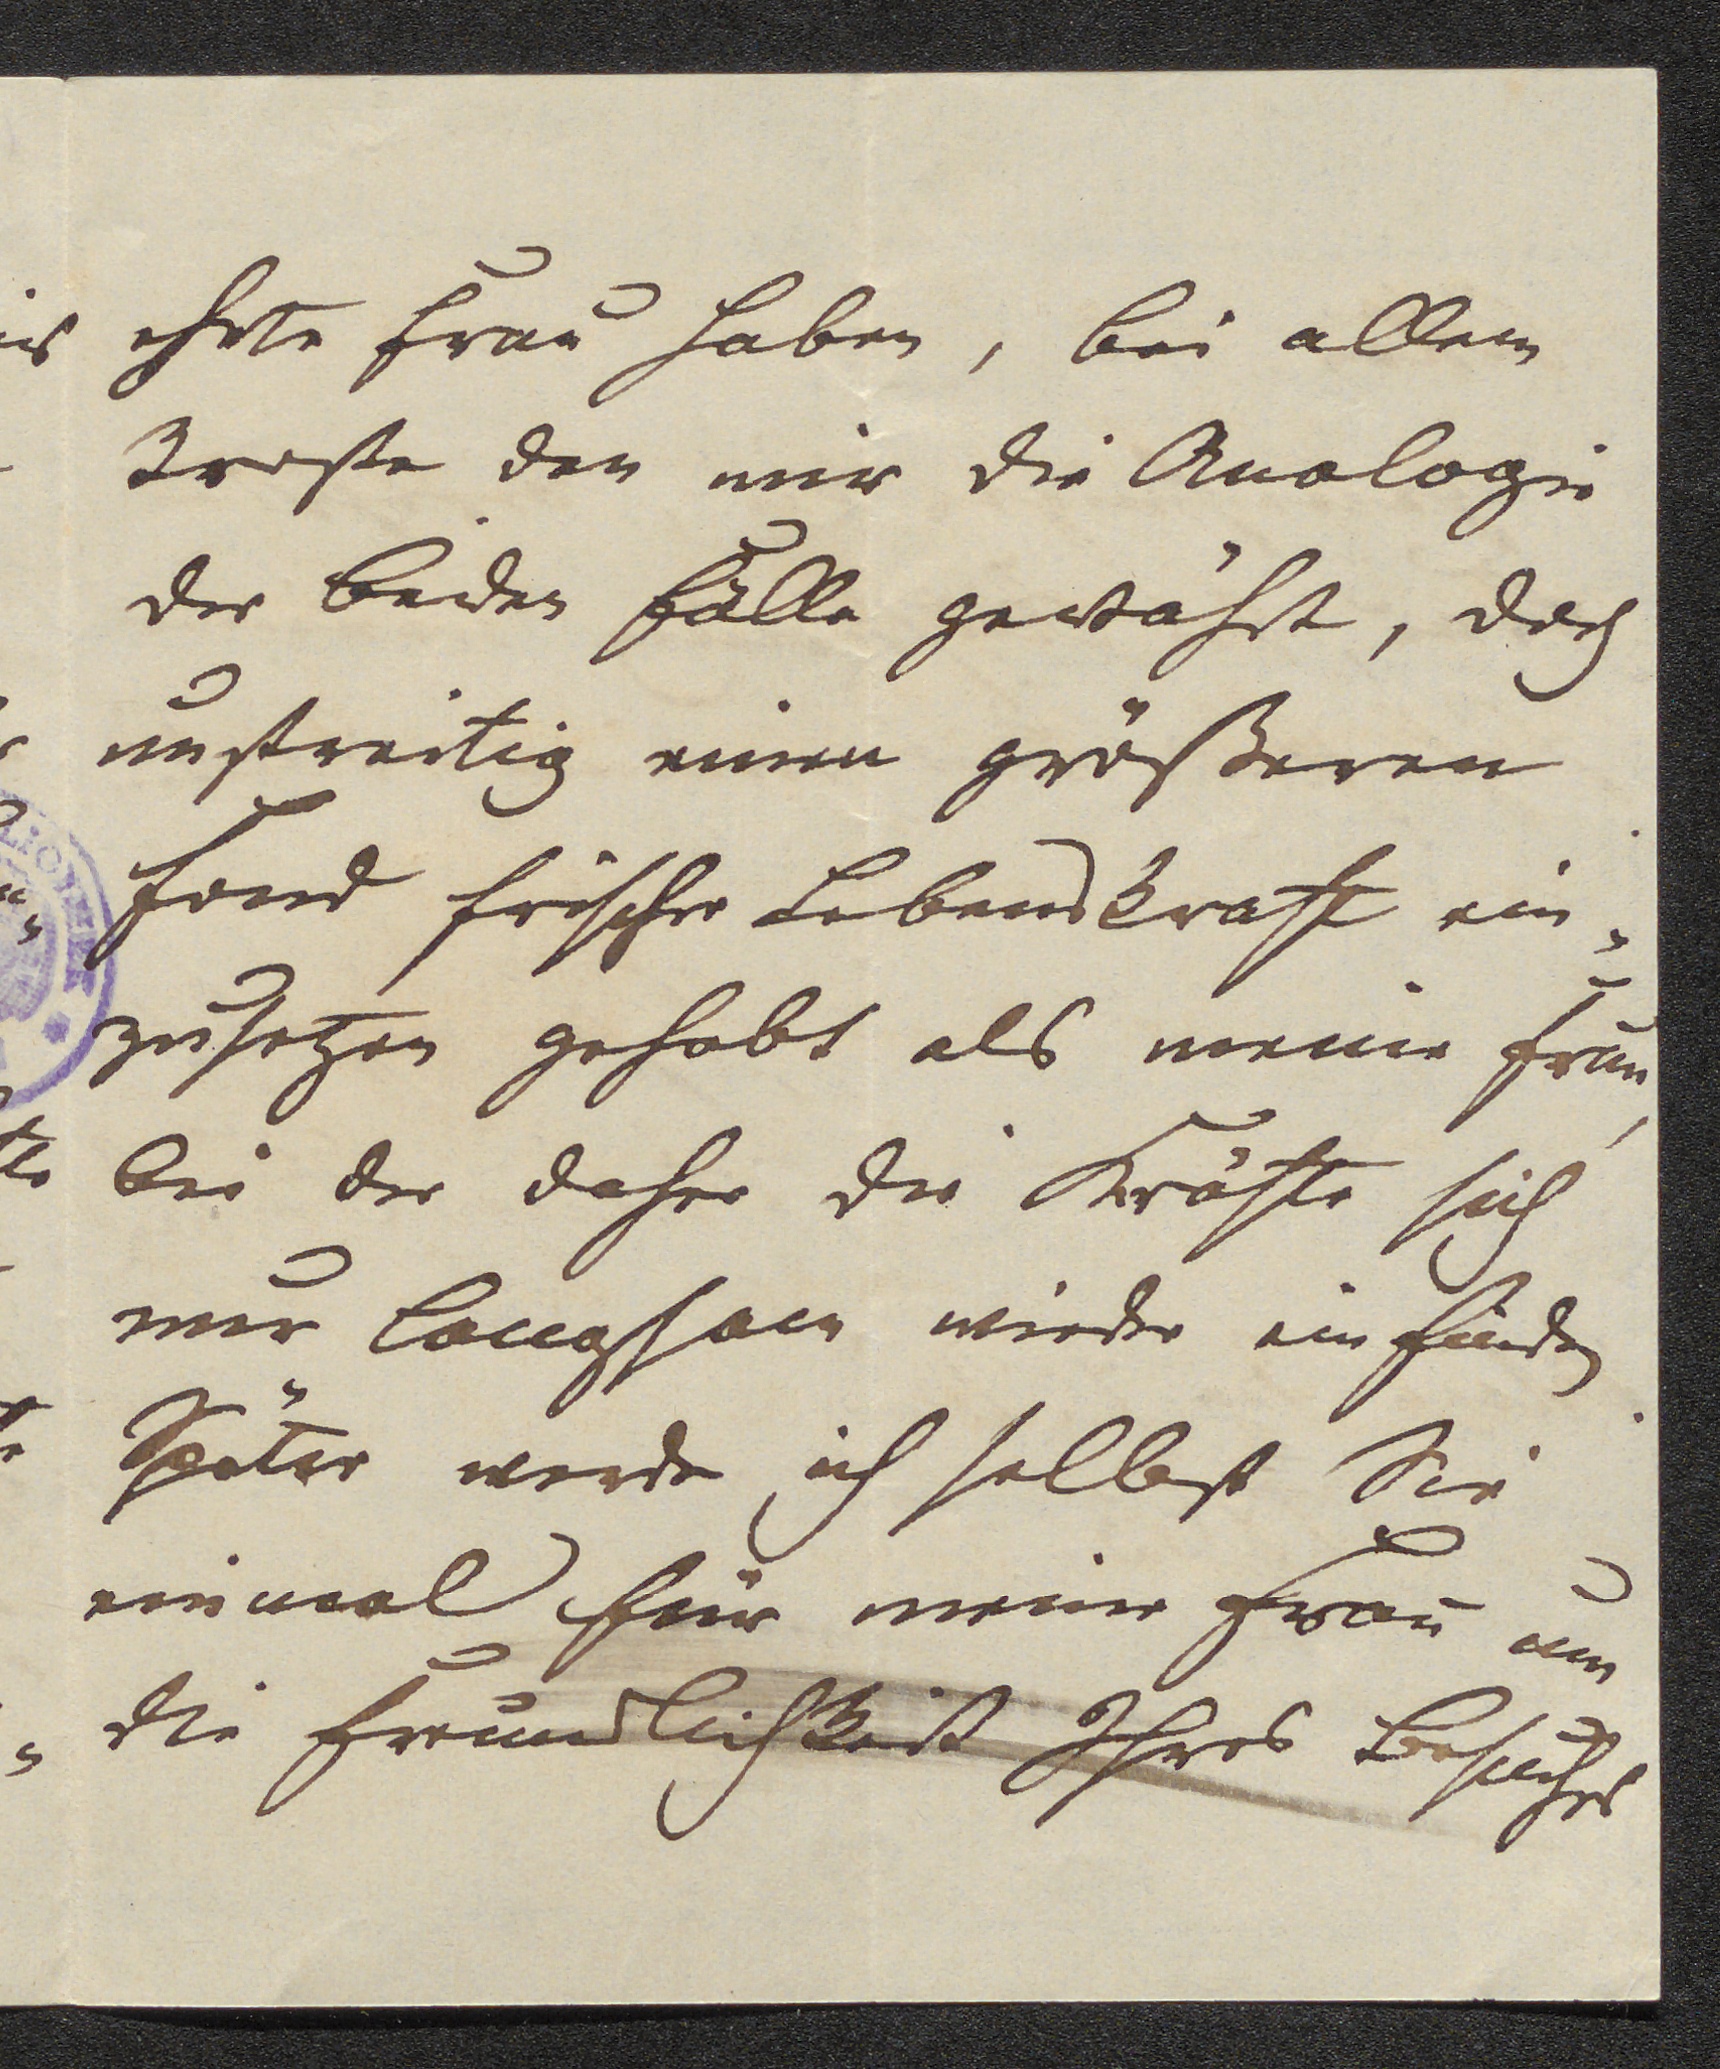 ehrte Frau haben, bei allem
Troste den mir die Analogie
der beiden Fälle gewährt, doch
unstreitig einen größeren
Fond frischer Lebenskraft ein-
zusetzen gehabt als meine Frau,
bei der daher die Kräfte sich
nur langsam wieder einfinden
Später werde ich selbst Sie
einmal für meine Frau um
die Freundlichkeit Ihres Besuches